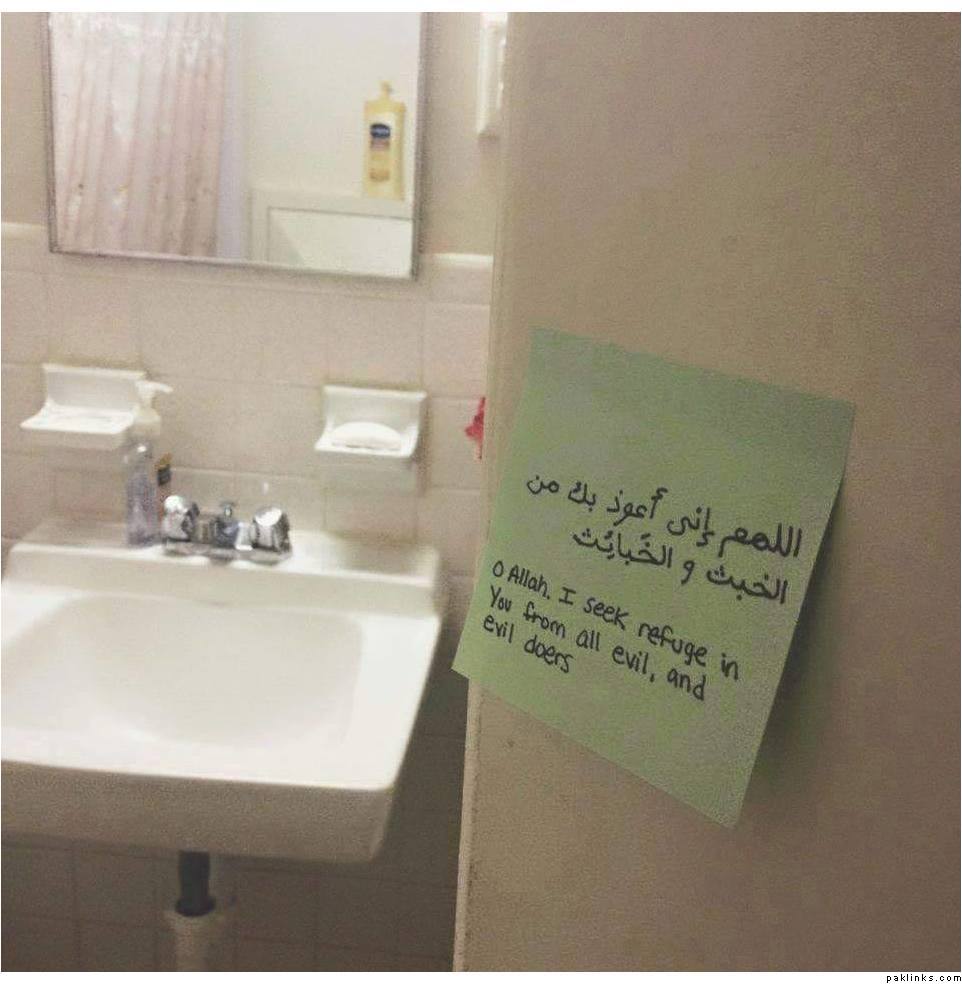 اللهم إنى أعوذ بك من
الخبث و الخَبائِث
O Allah. I seek refuge in
You from all evil, and
evil doers
paklinks.com